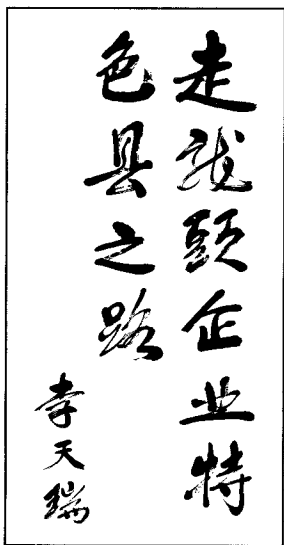 走龙頭企业特
色县之路
李天瑞